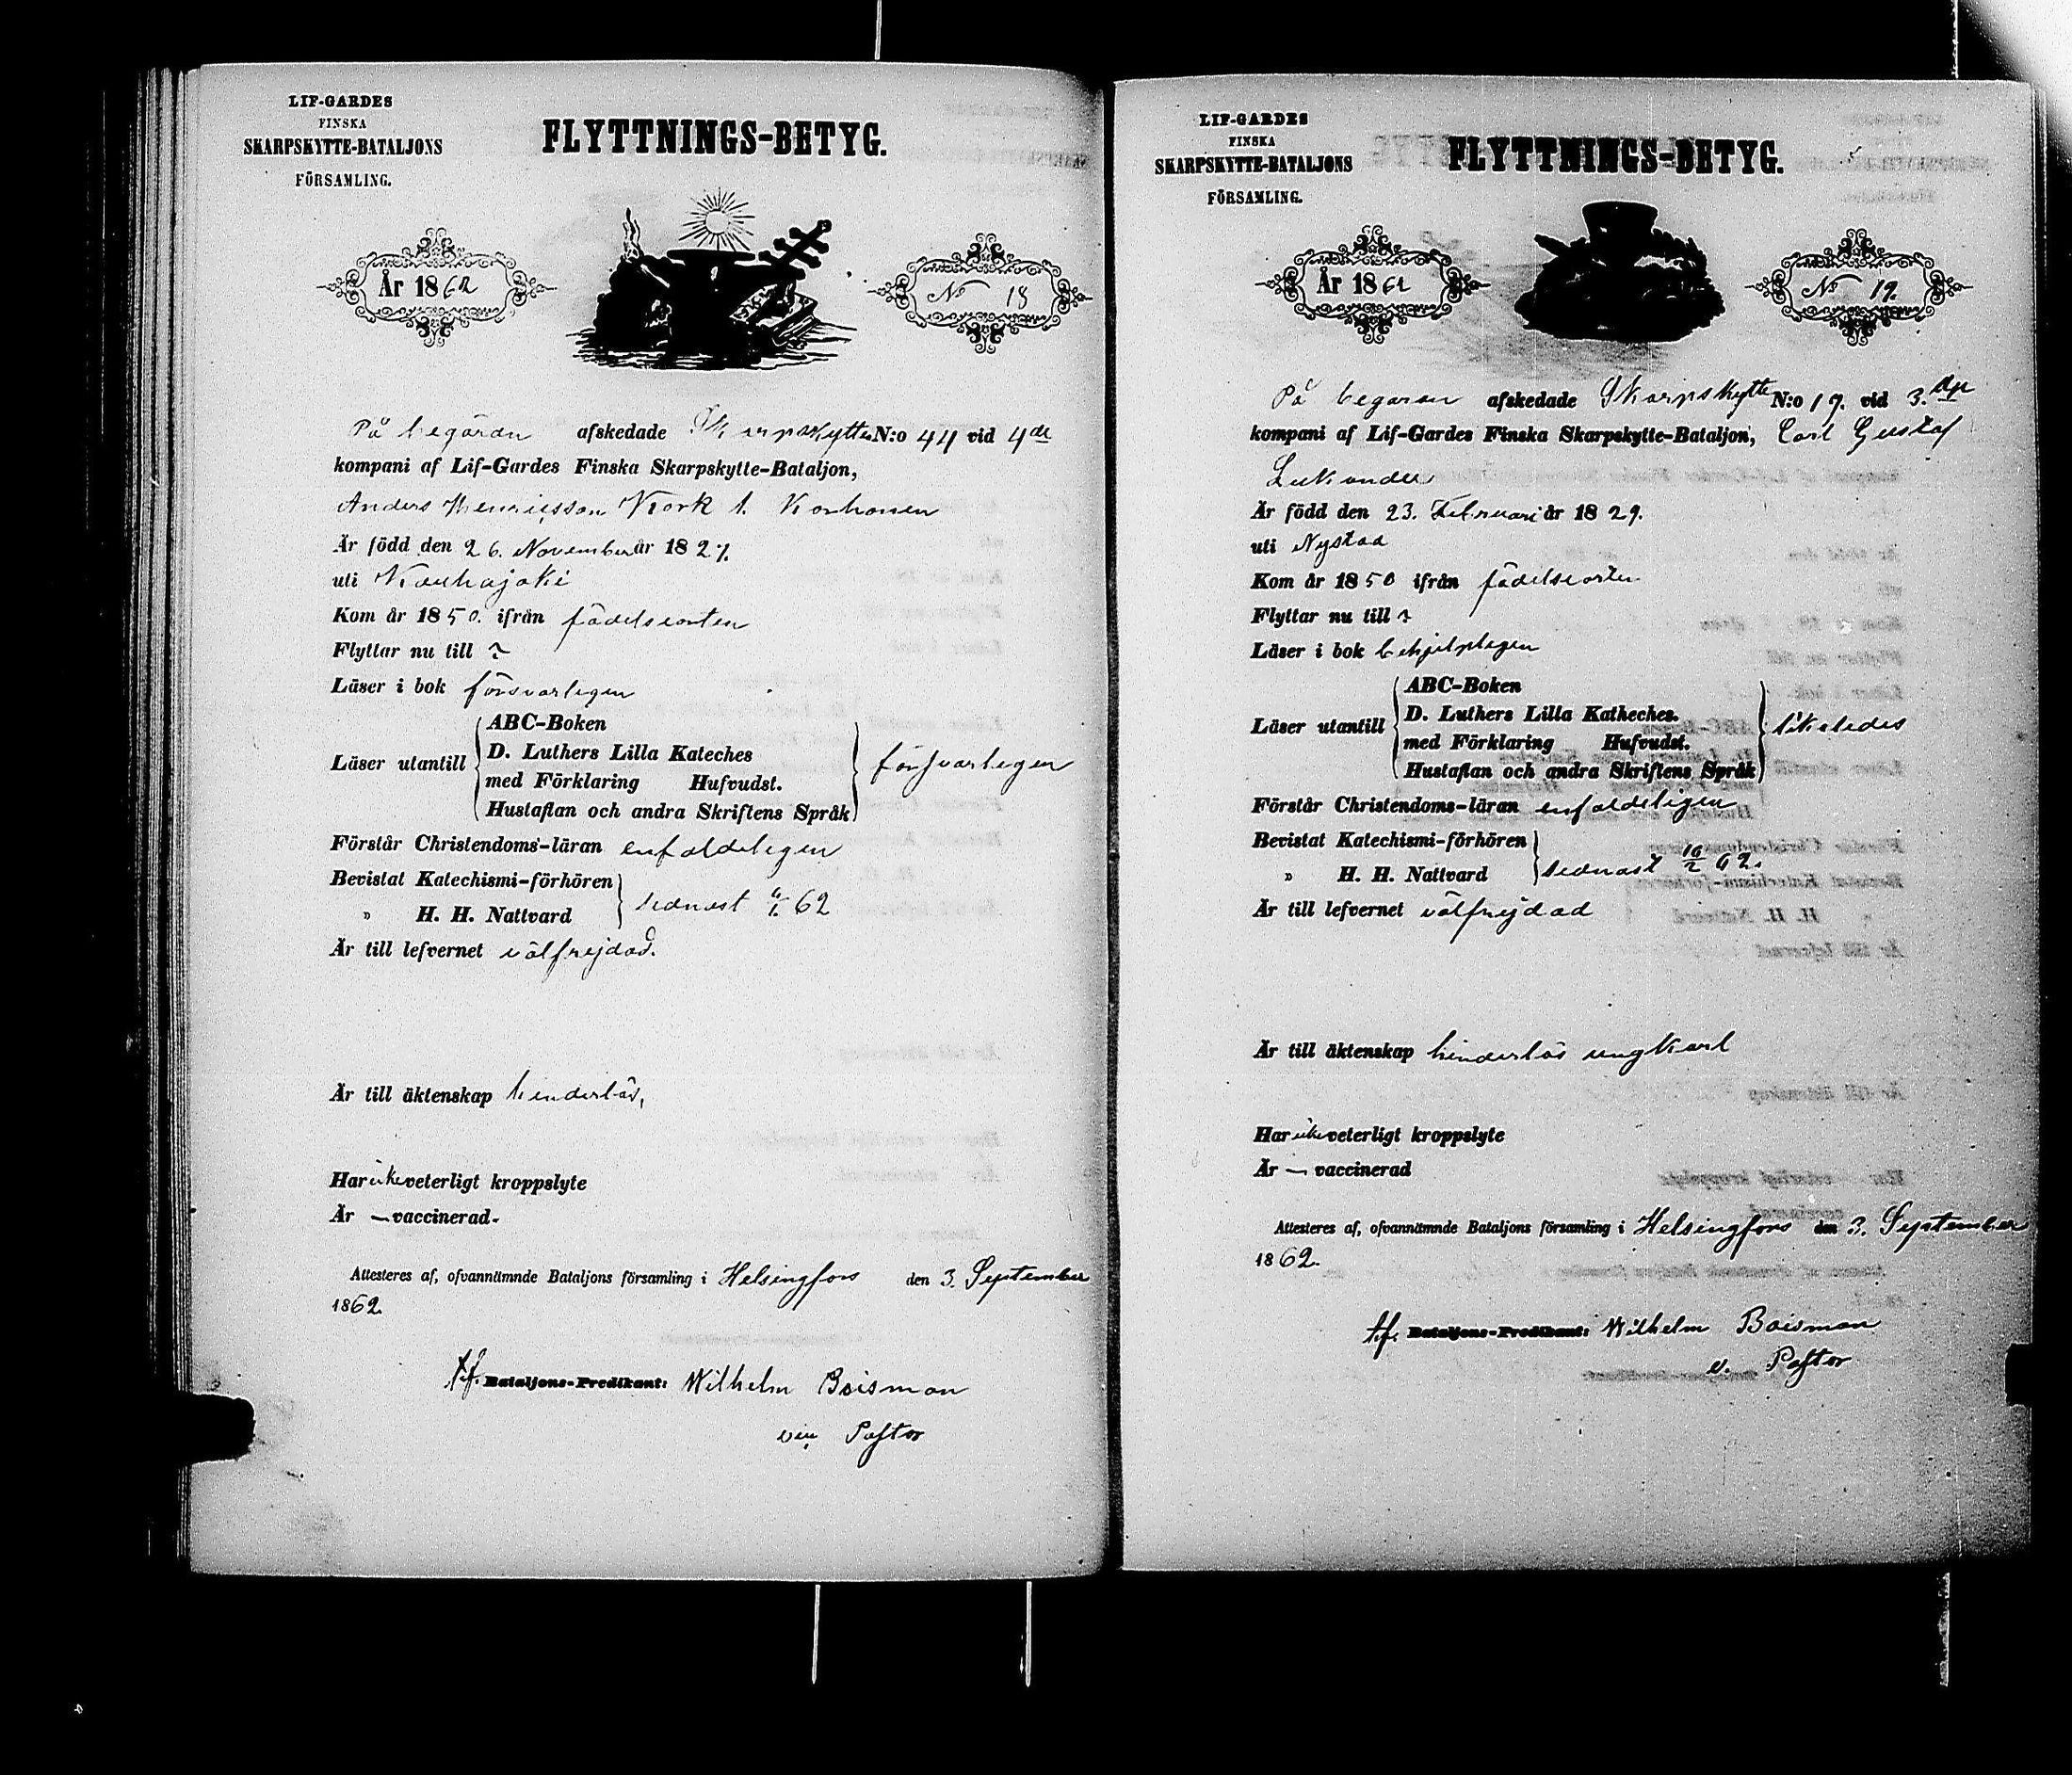 LIF-GARDES
FINSKA
SKARPSKYTTE-BATALJONS
FÖRSAMLING.
FLYTTNINGS-BETYG.
År 1862
No 18
På begäran afskedade Skarpskytte N:o 44 vid 4de
kompani af Lif-Gardes Finska Skarpskytte-Bataljon,
Anders Henricsson Kork l. Korhonen
Är född den 26. November år 1827.
uti Kauhajoki
Kom år 1850. ifrån födelseorten
Flyttar nu till ?
Läser i bok försvarligen
Läser utantill
ABC-Boken
D. Luthers Lilla Kateches
med Förklaring Hufvudst.
Hustaflan och andra Skriftens Språk
försvarligen
Förstår Christendoms-läran enfaldeligen
Bevistat Katechismi-förhören
" H. H. Nattvard
sednast 6/1. 62
Är till lefvernet välfrejdad.
Är till äktenskap hinderlös,
Har icke veterligt kroppslyte
Är — vaccinerad.
Attesteres af, ofvannämnde Bataljons församling i Helsingfors den 3. September
1862.
t.f. Bataljons-Predikant: Wilhelm Boisman
vic. Pastor
LIF-GARDES
FINSKA
SKARPSKYTTE-BATALJONS
FÖRSAMLING.
FLYTTNINGS-BETYG.
År 1862
No 19.
På begäran afskedade Skarpskytte N:o 19. vid 3.dje
kompani af Lif-Gardes Finska Skarpskytte-Bataljon, Carl Gustaf
Lukander
Är född den 23. Februari år 1829.
uti Nystad
Kom år 1850 ifrån födelseorten
Flyttar nu till ?
Läser i bok behjelpligen
Läser utantill
ABC-Boken
D. Luthers Lilla Katheches.
med Förklaring Hufvudst.
Hustaflan och andra Skriftens Språk
likaledes
Förstår Christendoms-läran enfaldeligen
Bevistat Katechismi-förhören
" H. H. Nattvard
sednast 16/2 62.
Är till lefvernet välfrejdad
Är till äktenskap hinderlös ungkarl
Har icke veterligt kroppslyte
Är — vaccinerad
Attesteres af, ofvannämnde Bataljons församling i Helsingfors den 3. September
1862.
t.f. Bataljons-Predikant: Wilhelm Boisman
v. Pastor